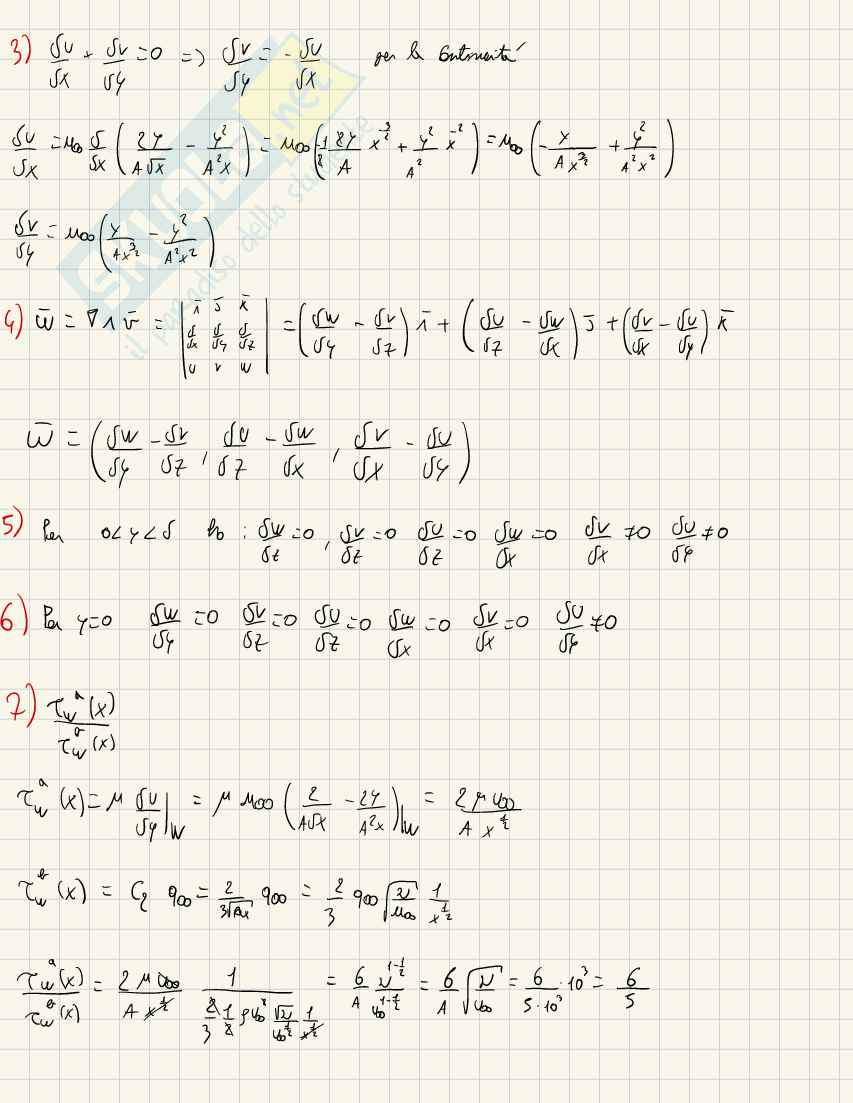 3) δu/δx + δv/δy = 0 => δv/δy = - δu/δx per la continuità
δu/δx = u∞ δ/δx (2y/(A√x) - y²/(A²x)) = u∞ (-1/2 2y/A x^(-3/2) + y²/A² x^(-2)) = u∞ (- y/(A x^(3/2)) + y²/(A²x²))
δv/δy = u∞ (y/(A x^(3/2)) - y²/(A²x²))
4) w̄ = ∇ ∧ v̄ = | ī j̄ k̄ ; δ/δx δ/δy δ/δz ; u v w | = (δw/δy - δv/δz) ī + (δu/δz - δw/δx) j̄ + (δv/δx - δu/δy) k̄
w̄ = (δw/δy - δv/δz , δu/δz - δw/δx , δv/δx - δu/δy)
5) Per 0<y<δ ho : δw/δz = 0 , δv/δz = 0 δu/δz = 0 δw/δx = 0 δv/δx ≠ 0 δu/δy ≠ 0
6) Per y=0 δw/δy = 0 δv/δz = 0 δu/δz = 0 δw/δx = 0 δv/δx = 0 δu/δy ≠ 0
7) τ_w^a (x) / τ_w^b (x)
τ_w^a (x) = μ δu/δy |_w = μ u∞ (2/(A√x) - 2y/(A²x))|_w = 2 μ u∞ / (A x^(1/2))
τ_w^b (x) = C_f q∞ = 2/(3√Rx) q∞ = 2/3 q∞ √(ν/u∞) 1/x^(1/2)
τ_w^a (x) / τ_w^b (x) = 2 μ u∞ / (A x^(1/2)) 1/(2/3 1/2 ρ u∞² √ν/u∞^(1/2) 1/x^(1/2)) = 6/A ν^(1-1/2)/u∞^(1-1/2) = 6/A √(ν/u∞) = 6/(5·10³) · 10³ = 6/5
SKUOLA.net
il paradiso dello studente